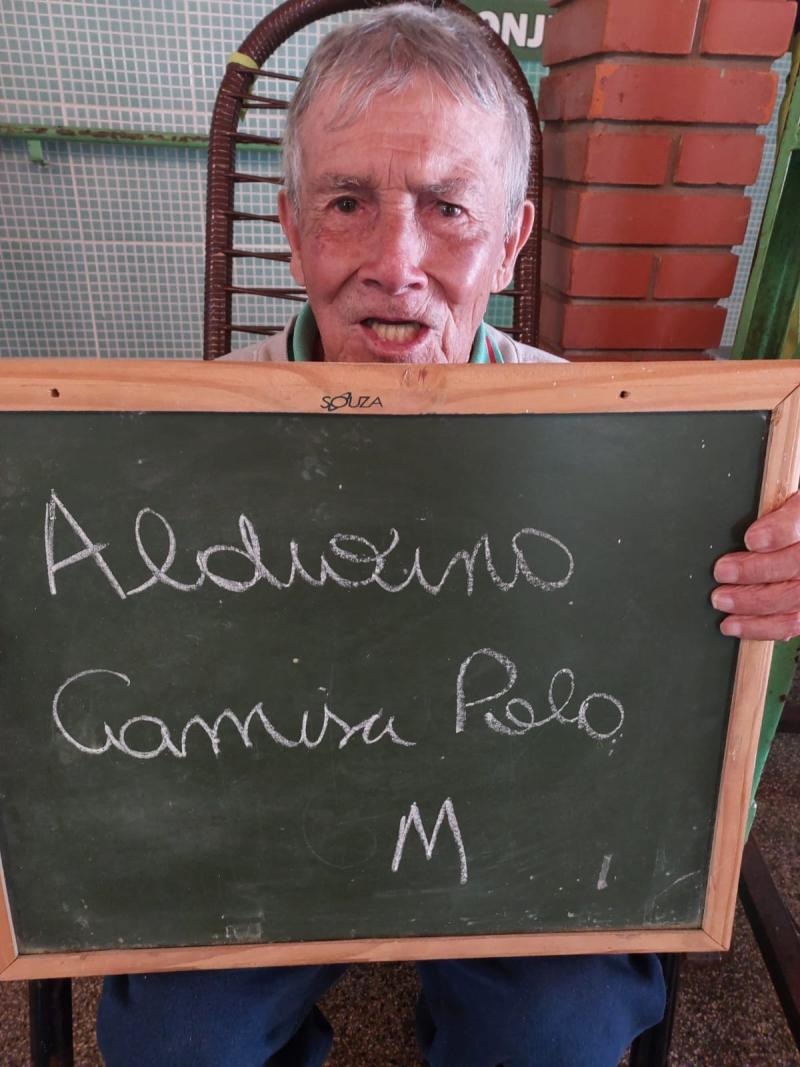 ONJ
SOUZA
Alduino
Camisa Polo
M